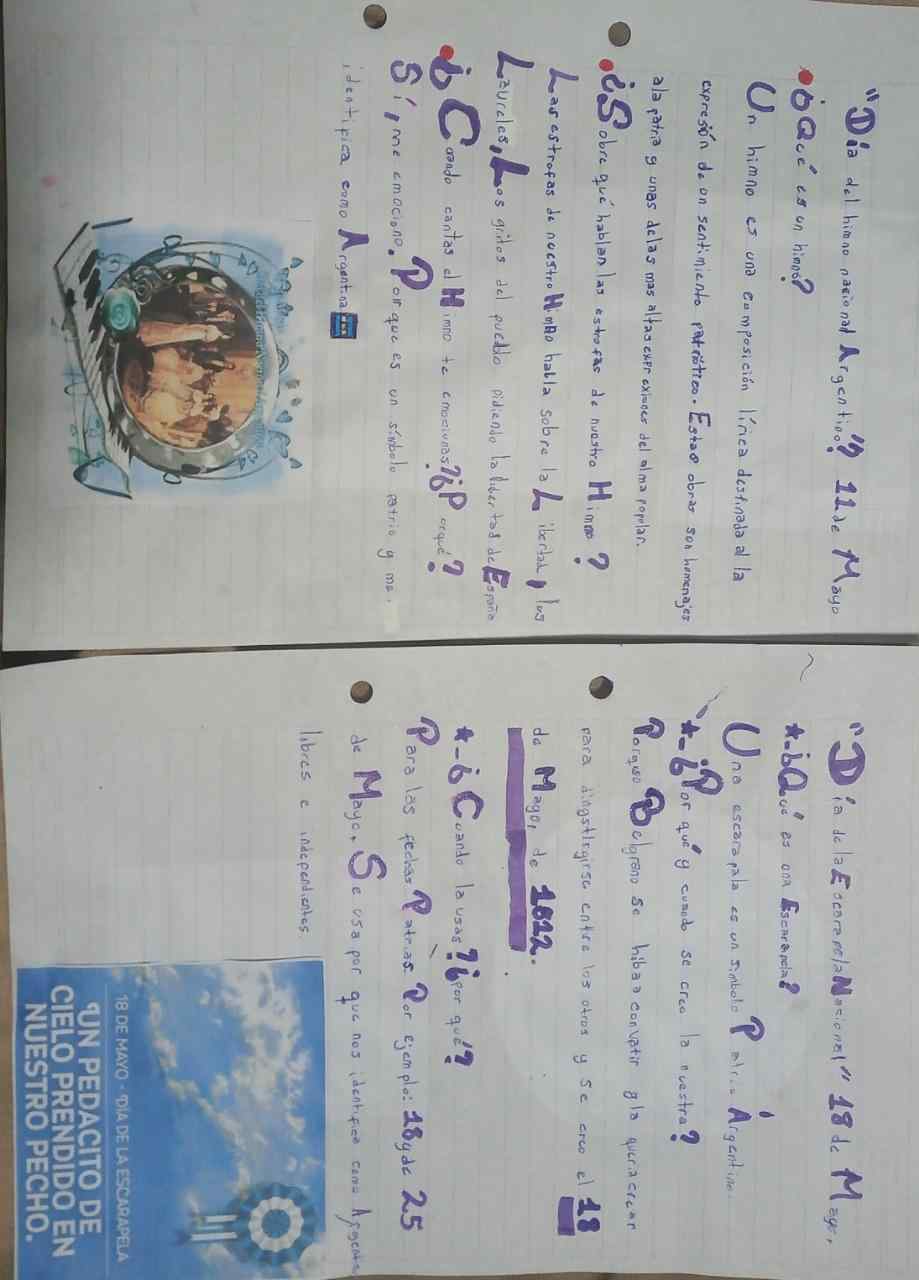 "Día del himno nacional Argentino" 11 de Mayo
¿Qué es un himno?
Un himno es una composición lírica destinada al la
expresión de un sentimiento patriótico. Estas obras son homenajes
ala patria y unas delas mas altas exprexiones del alma popular.
¿Sobre qué hablan las estrofas de nuestro Himno?
Las estrofas de nuestro Himno habla sobre la Libertad, los
Laureles, Los gritos del pueblo pidiendo la libertas de España
¿Cuando cantas el Himno te emocionas? ¿Porqué?
Sí, me emociono. Porque es un símbolo patrio y me.
identifica como Argentina
"Día de la Escarapela Nacional" 18 de Mayo,
*-¿Qué es una Escarapela?
Una escarapala es un simbolo Patrio Árgentino.
*-¿Por qué y cuando se creo la nuestra?
Porque Belgrano se hibaa convatir y la queria crear
para dingstlegirse entre los otros y se creo el 18
de Mayo, de 1822.
*-¿Cuando la usas? ¿por qué?
Para las fechas Patrias. Por ejemplo: 18 y de 25
de Mayo. Se usa por que nos identifica como Argentinos
libres e independientes.
18 DE MAYO • DÍA DE LA ESCARAPELA
"UN PEDACITO DE
CIELO PRENDIDO EN
NUESTRO PECHO.